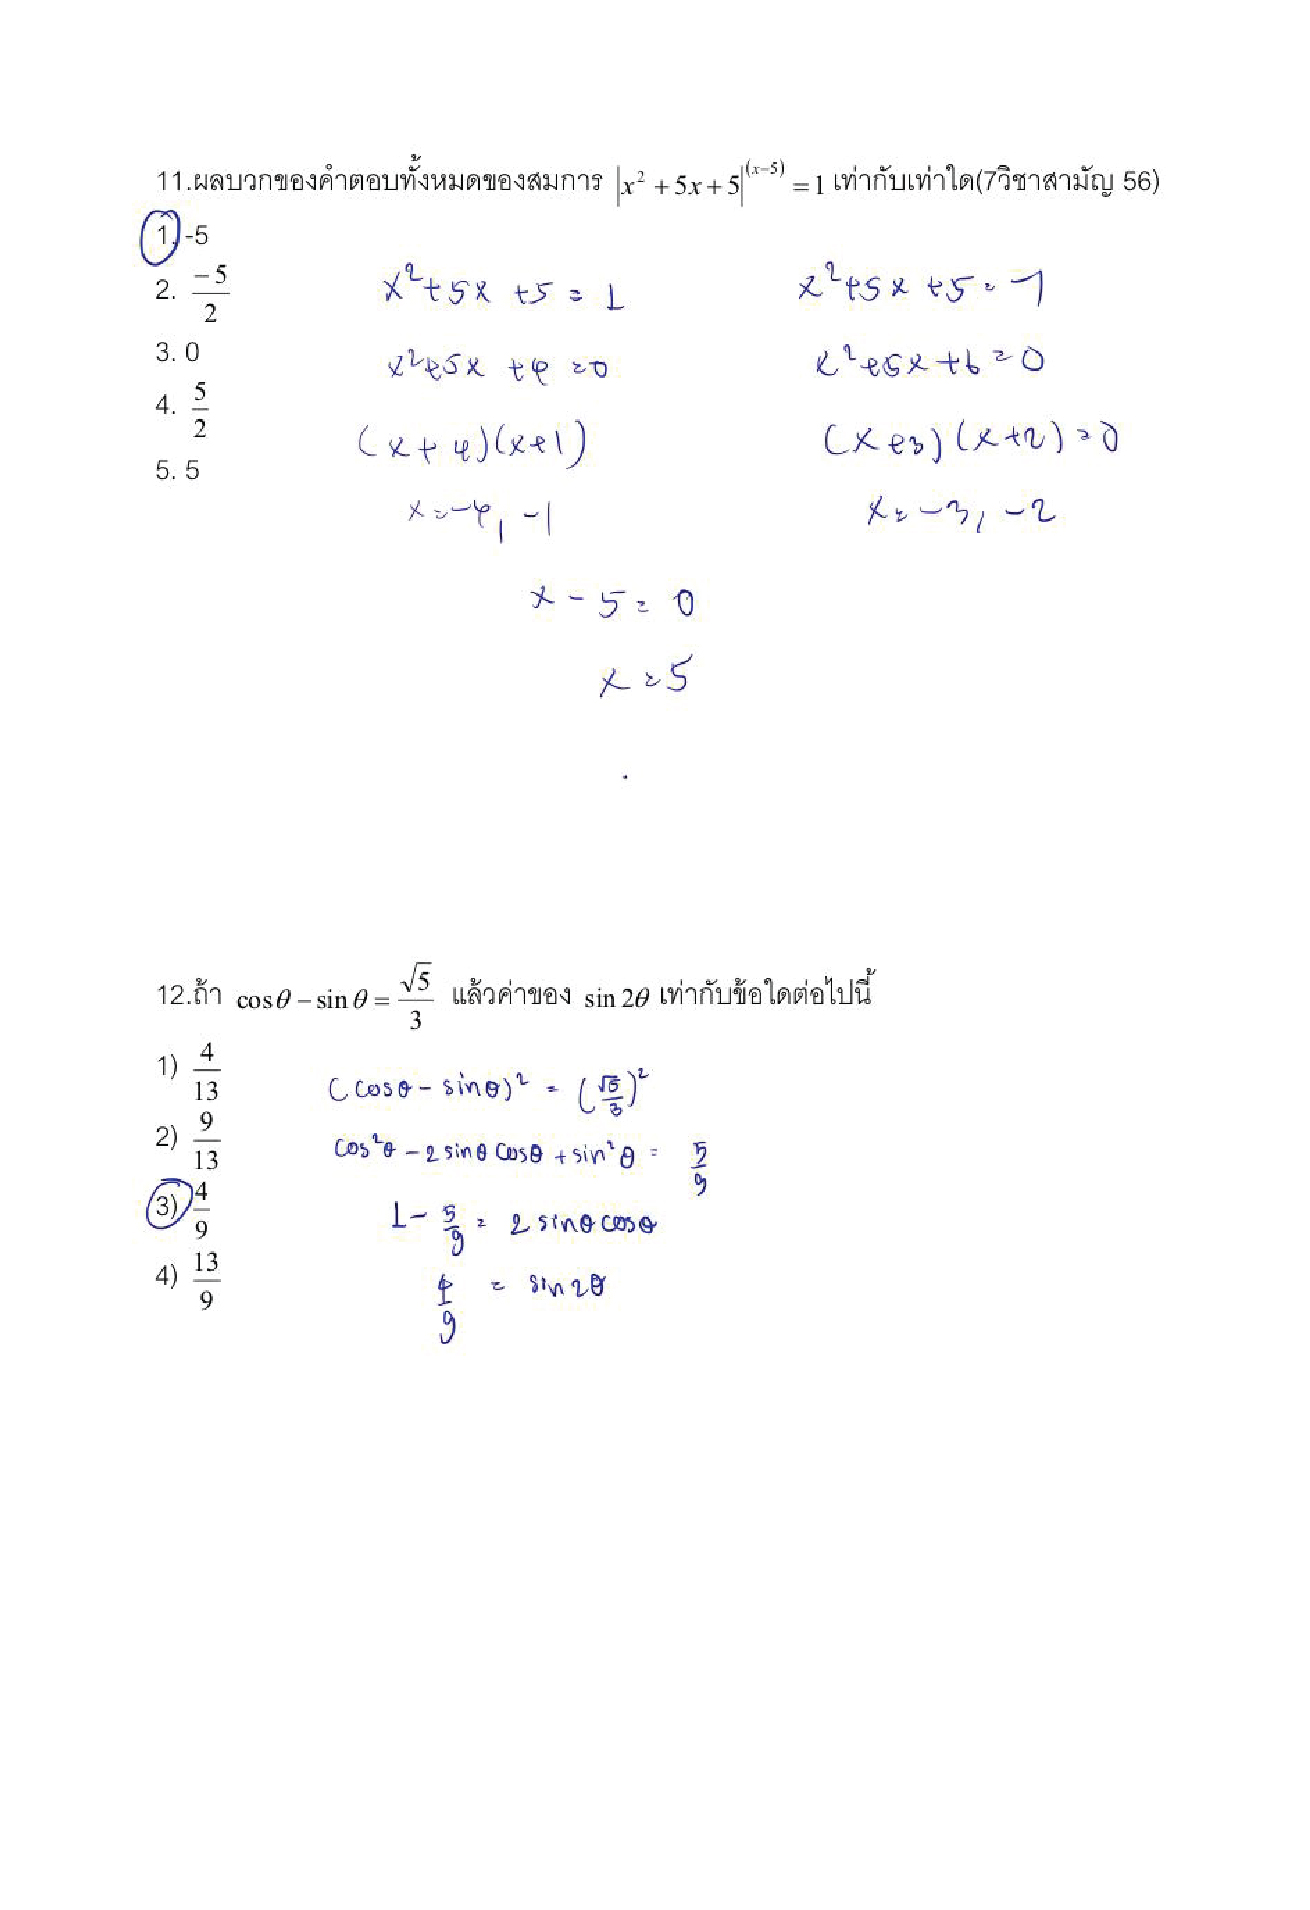 11.ผลบวกของคำตอบทั้งหมดของสมการ |x² + 5x + 5|^(x−5) = 1 เท่ากับเท่าใด(7วิชาสามัญ 56)
1. -5
2. −5/2
3. 0
4. 5/2
5. 5
x² + 5x + 5 = 1
x² + 5x + 5 = -1
x² + 5x + 4 = 0
x² + 5x + 6 = 0
(x + 4)(x + 1)
(x + 3)(x + 2) = 0
x = -4, -1
x = -3, -2
x - 5 = 0
x = 5
12.ถ้า cosθ − sinθ = √5/3 แล้วค่าของ sin 2θ เท่ากับข้อใดต่อไปนี้
1) 4/13
2) 9/13
3) 4/9
4) 13/9
(cosθ - sinθ)² = (√5/3)²
cos²θ - 2 sinθ cosθ + sin²θ = 5/9
1 - 5/9 = 2 sinθ cosθ
4/9 = sin2θ